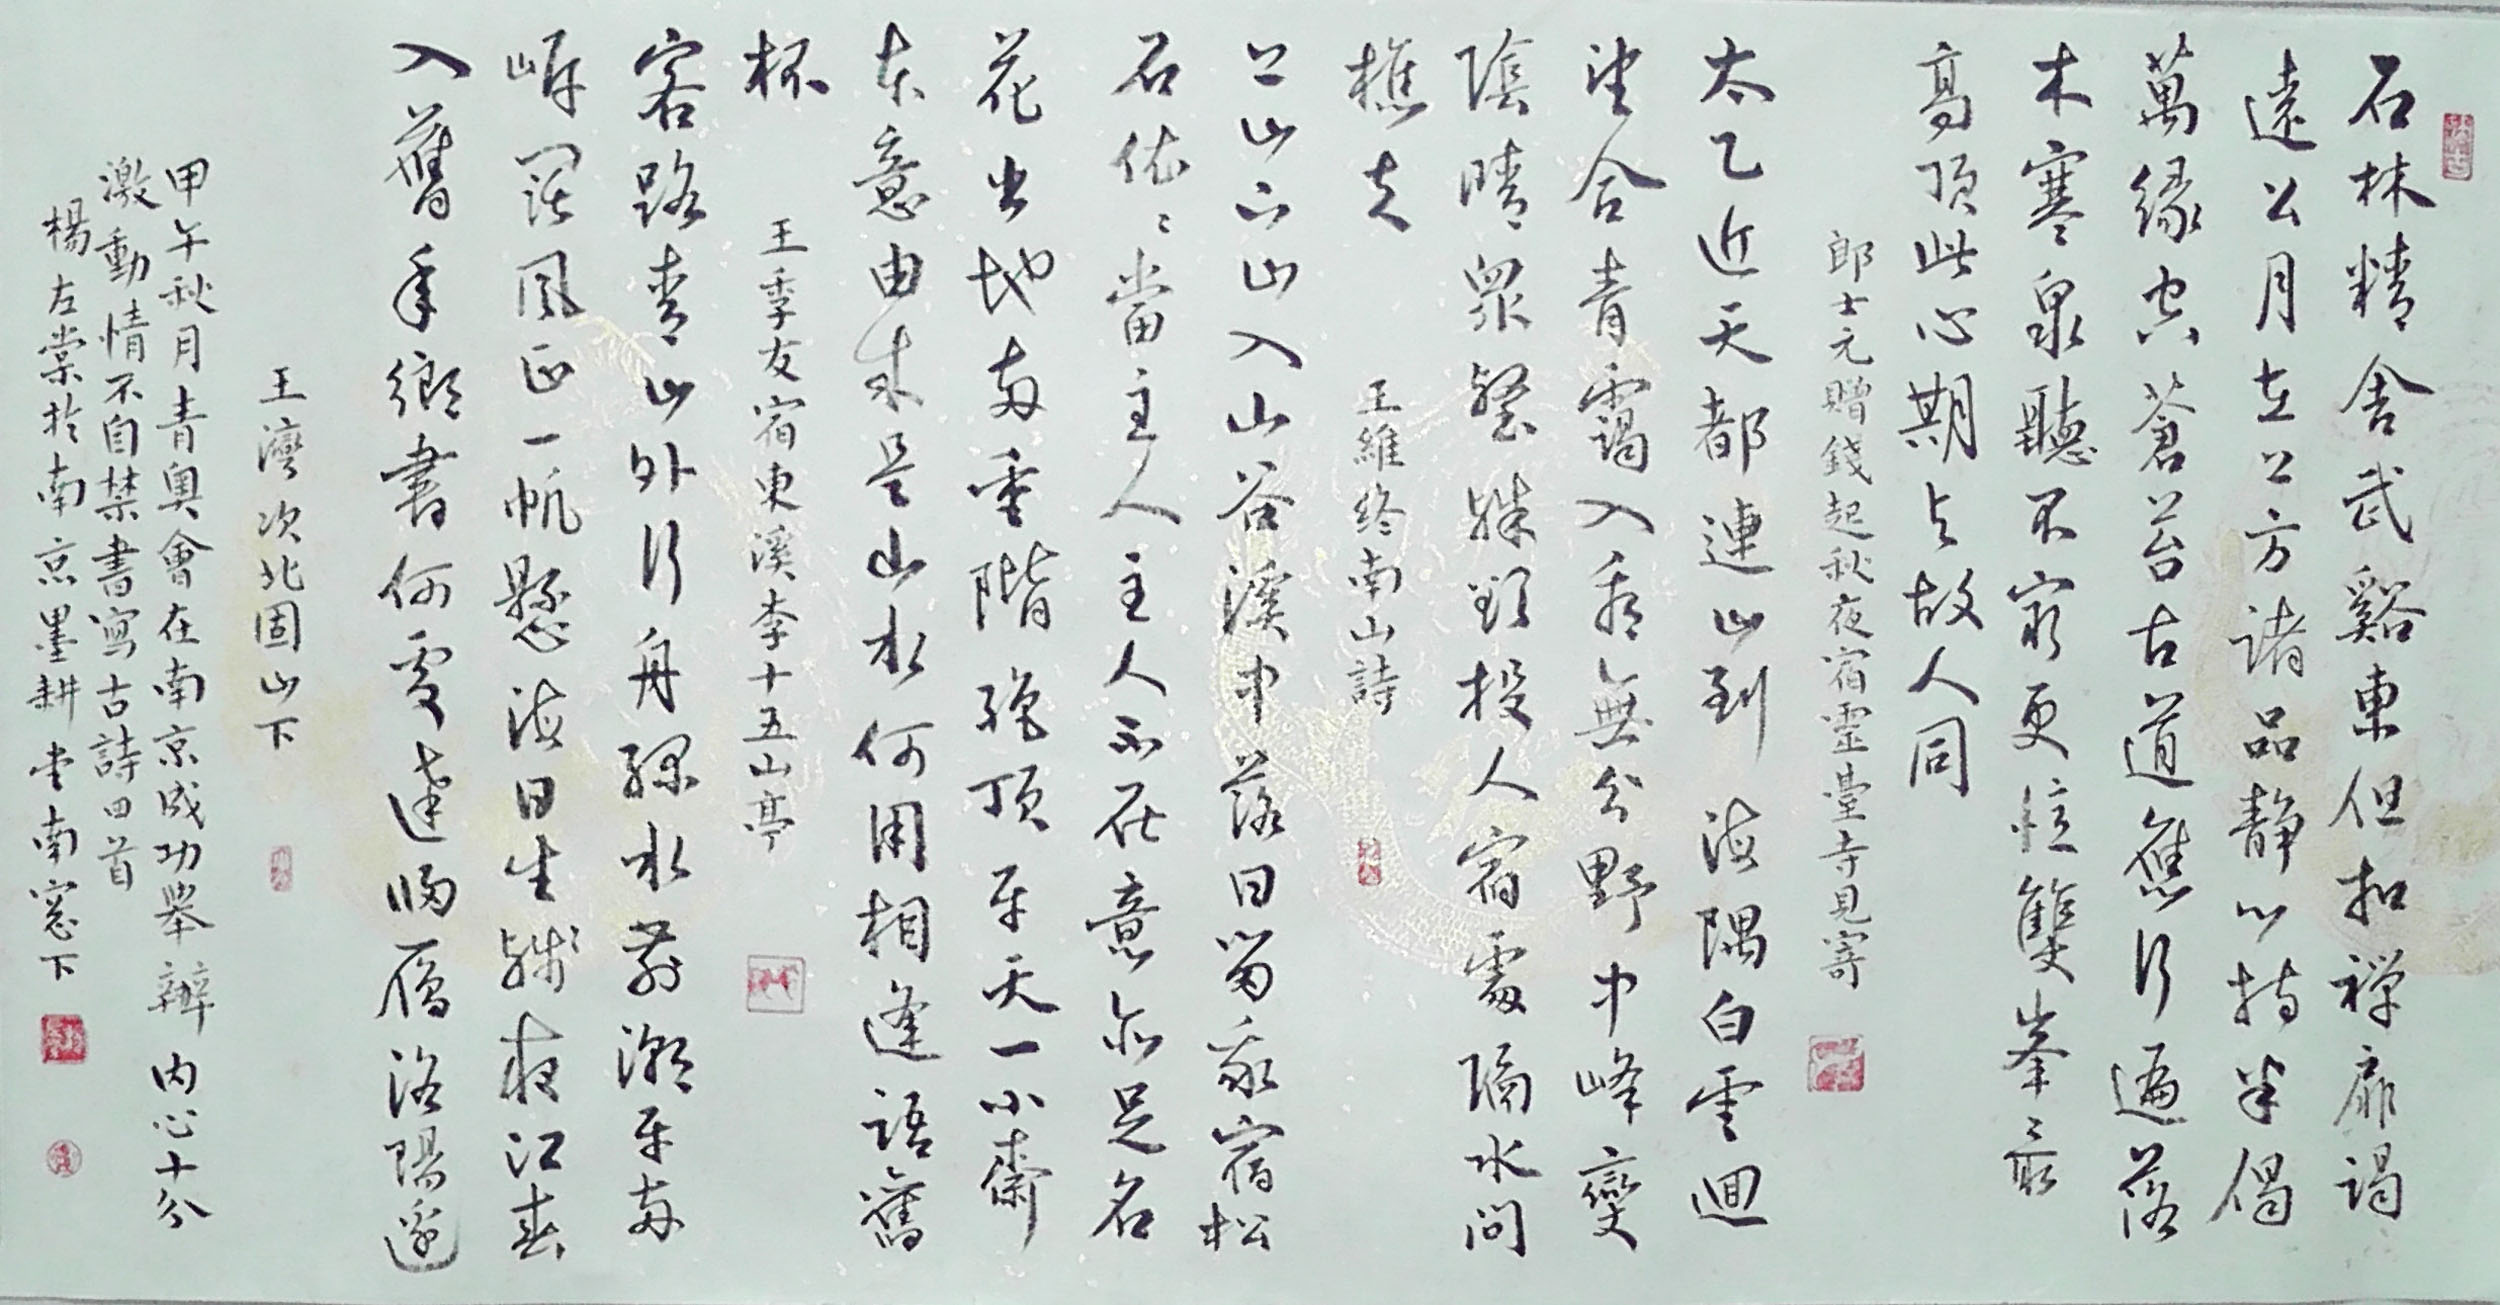 石林精舍武谿東但扣禅扉謁
遠公月在上方諸品静心持半偈
萬緣空蒼苔古道應行遍落
木寒泉聽不窮更憶雙峯〻最
高頂此心期与故人同
郎士元贈錢起秋夜宿靈臺寺見寄
太乙近天都連山到海隅白雲迴
望合青靄入看無分野中峰變
陰晴衆壑殊欲投人宿處隔水問
樵夫
王維終南山詩
上山下山入山谷溪中落日留我宿松
石依〻當主人主人不在意亦足名
花出地兩重階絶頂平天一小齋
本意由來是山水何用相逢語舊
杯
王季友宿東溪李十五山亭
客路青山外行舟緑水前潮平兩
岸闊風正一帆懸海日生殘夜江春
入舊年鄉書何處達歸雁洛陽邊
王灣次北固山下
甲午秋月青奥會在南京成功舉辦内心十分
激動情不自禁書寫古詩四首
楊左棠於南京墨耕堂南窓下